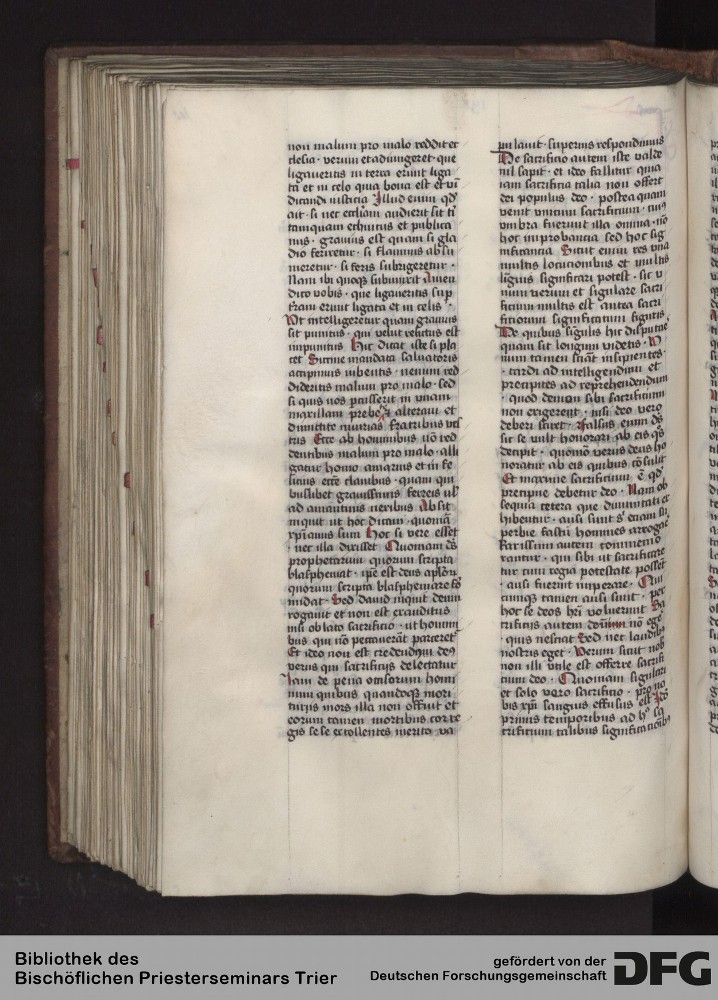 non malum pro malo reddit et
clesia · verum et adiungeret · que
ligaueritis in terra erunt liga
ta et in celo quia bona est et vi
dicandi iusticia Illud enim qd'
ait · si nec eccliam audierit sit ti
tamquam ethnicus et publica
nus · grauius est quam si gla
dio feriretur · si flammis absu
meretur · si feris subrigeretur ·
Nam ibi quoqz subiunxit Amen
dico vobis · que ligaueritis sup
terram erunt ligata et in celis
Vt intelligeretur quam grauius
sit punitus · qui velut relictus est
impunitus Hic dicat iste si pla
cet Sicine mandata saluatoris
accipimus iubentis · nemini red
dideritis malum pro malo · sed
si quis vos percusserit in vnam
maxillam prebete alteram et
dimittite iniurias fratribus ves
tris Ecce ab hominibus no red
dentibus malum pro malo · alli
gatur homo amarius et in fe
licius ecce clauibus · quam qui
buslibet grauissimis ferreis ul'
ad amantinis nexibus Absit
inquit ut hoc dicam · quoniam
xpianus sum Hoc si vere esset
· nec illa dixisset Quoniam ds
prophetarum quorum scripta
blasphemat · ipe est deus aplorum
quorum scripta blasphemare for
midat · Sed dauid inquit deum
rogauit et non est exauditus
nisi oblato sacrificio · ut homini
bus qui no peccauerant parceret
Et ideo non est credendum deus
verus qui sacrificijs delectatur
Iam de pena occisorum homi
num quibus quandoqz mori
turis mors illa non offuit et
eorum tamen mortibus cor re
gis se se extollentis merito va
pulauit · superius respondimus
De sacrificio autem iste valde
nil sapit · et ideo fallitur quia
iam sacrificia talia non offert
dei populus deo · postea quam
venit vnicum sacrificium · cui9
vmbra fuerunt illa omnia · no
hoc improbancia sed hoc sig
nificancia Sicut enim res vna
multis locucionibus et multis
linguis significari potest · sic v
num verum et singulare sacri
ficium multis est antea sacri
ficiorum significatum figuris
De quibus singulis hic disputare
quam sit longum videtis · V
num tamen sciant insipientes ·
· tardi ad intelligendum et
precipites ad reprehendendum
· quod demon sibi sacrificium
non exigerent · nisi deo vero
deberi sciret · Falsus enim ds
sic se vult honorari ab eis qs
decipit · quomodo verus deus ho
noratur ab eis quibus consulit
Et maxime sacrificium e qd'
precipue debetur deo · Nam ob
sequia cetera que diuinitati ex
hibentur · ausi sunt s' etiam su
perbie fastu homines arrogare
Rarissimi autem commemo
rantur · qui sibi ut sacrificaretur
cum regia potestate possent
· ausi fuerint imperare · Qui
cumqz tamen ausi sunt · per
hoc se deos heri voluerunt Sa
crificijs autem deum no egere
· quis nesciat Sed nec laudibus
nostris eget · Verum sicut nob
non illi vtile est offerre sacrifi
cium deo · Quoniam singulari
et solo vero sacrificio · pro no
bis xpi sanguis effusus est Ideo
primis temporibus ad h' sa
crificium talibus significationibus
Bibliothek des
Bischöflichen Priesterseminars Trier
gefördert von der
Deutschen Forschungsgemeinschaft
DFG